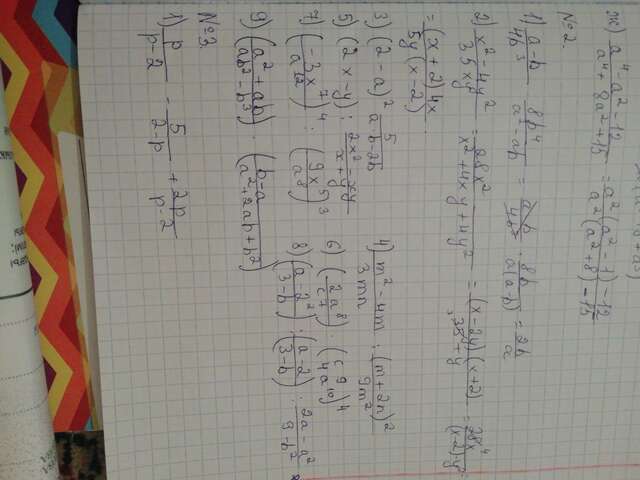 ж) a⁴-a²-12 / a⁴+8a²+15 = a²(a²-1)-12 / a²(a²+8)-15
№2.
1) a-b / 4b³ · 8b⁴ / a²-ab = a-b / 4b³ · 8b / a(a-b) = 2b / a
2) x²-4y² / 35xy · 28x² / x²+4xy+4y² = (x-2y)(x+2) / 35+y · 28x⁴ / (x-2)·y² =
= (x+2)4x / 5y(x-2)
3) (2-a)² 5 / ab-2b 4) m²-4m / 3mn : (m+2n)² / 9m²
5) (2x-y) : 2x²-xy / x+y 6) (2a⁸ / c⁷) : (c⁹ / 4a¹⁰)⁴
7) (-3x⁷ / a¹²)⁴ : (9x⁵ / a⁸)³ 8) (a-2² / 3-b) : (a-2 / 3-b) : 2a-a² / 9-b²
9) (a²+ab / ab²-b³) · (b-a / a²+2ab+b²)
№3.
1) p / p-2 - 5 / 2-p + 2p / p-2